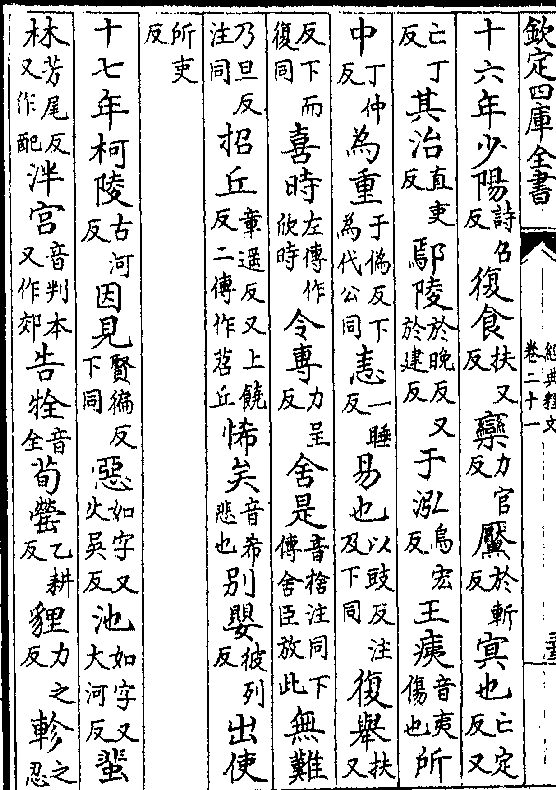 欽定四庫全書
經典釋文
卷二十一
十六年少陽詩召反復食扶又反欒力官反黶於斬反㝠也亡定反又
亡丁反其治直吏反鄢陵於晚反又於建反于泓烏宏反王痍音夷傷也所
中丁仲反為重于偽反下為代公同恚一睡反易也以豉反注及下同復舉扶又
反下而復同喜時左傳作欣時令專力呈反舍是音捨注同下傳舍臣放此無難
乃旦反注同招丘章遥反又上饒反二傳作苕丘悕矣音希悲也别嬰彼列反出使
所吏反
十七年柯陵古河反因見賢徧反下同惡如字又火吳反池如字又大河反蜚
林芳尾反又作配泮宫音判本又作郊告牷音全荀罃乙耕反貍力之反軫之忍